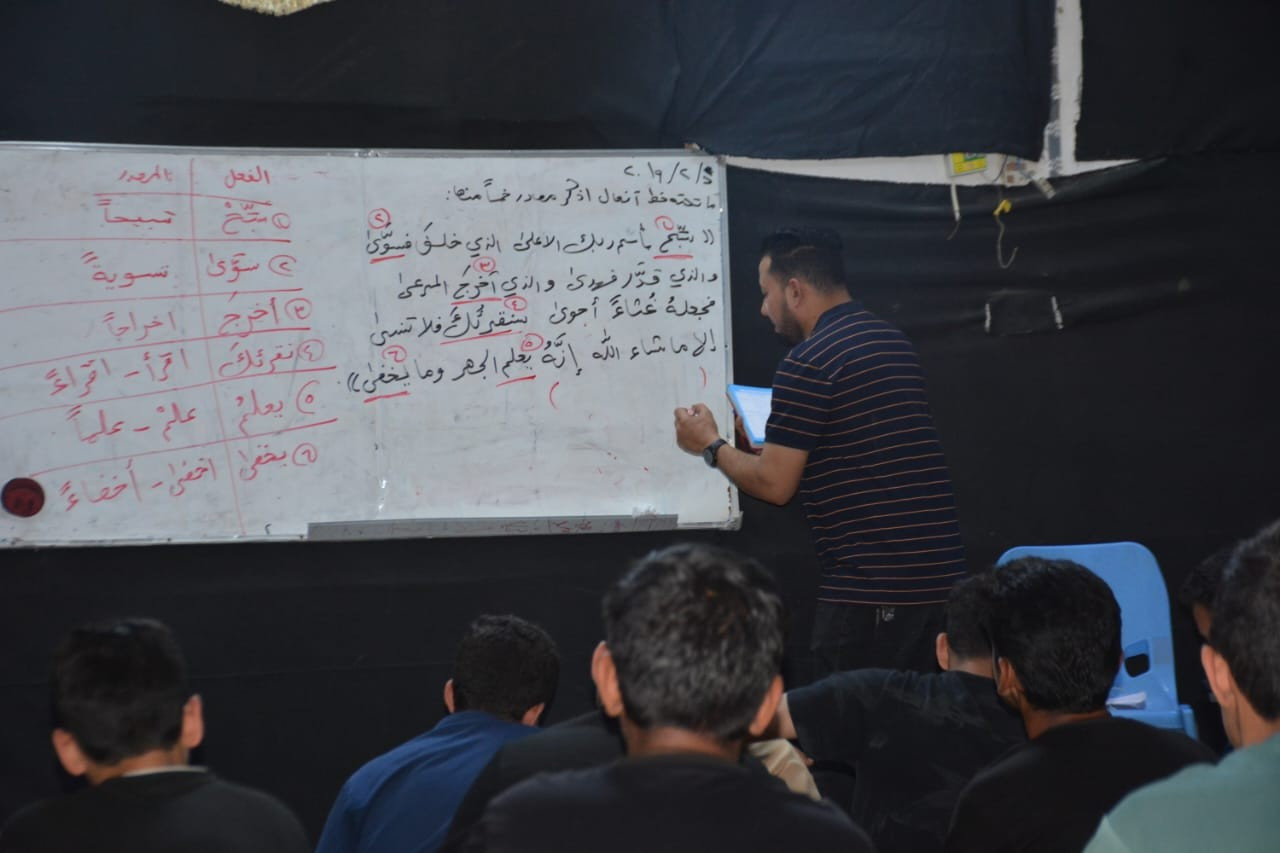 ٢٠١٩/٢/٥
ما تحته خط أفعال اذكر مصادر خمساً منها:
(( سَبِّحْ بأسم ربك الاعلى الذي خلقَ فسوَّىٰ
١ ٢
والذي قدَّر فهدىٰ والذي أخرجَ المرعىٰ
٣
فجعلهُ غُثاءً أحوىٰ سنقرئُكَ فلا تنسىٰ
٤
إلا ما شاء الله إنَّهُ يعلم الجهر وما يخفىٰ ))
٥ ٦
( )
الفعل المصدر
١ سَبِّحْ تسبيحاً
٢ سوَّىٰ تسويةً
٣ أخرجَ اخراجاً
٤ نقرئكَ اقرأ - اقراءً
٥ يعلمُ علمْ - علماً
٦ يخفىٰ اخفىٰ - أخفاءً